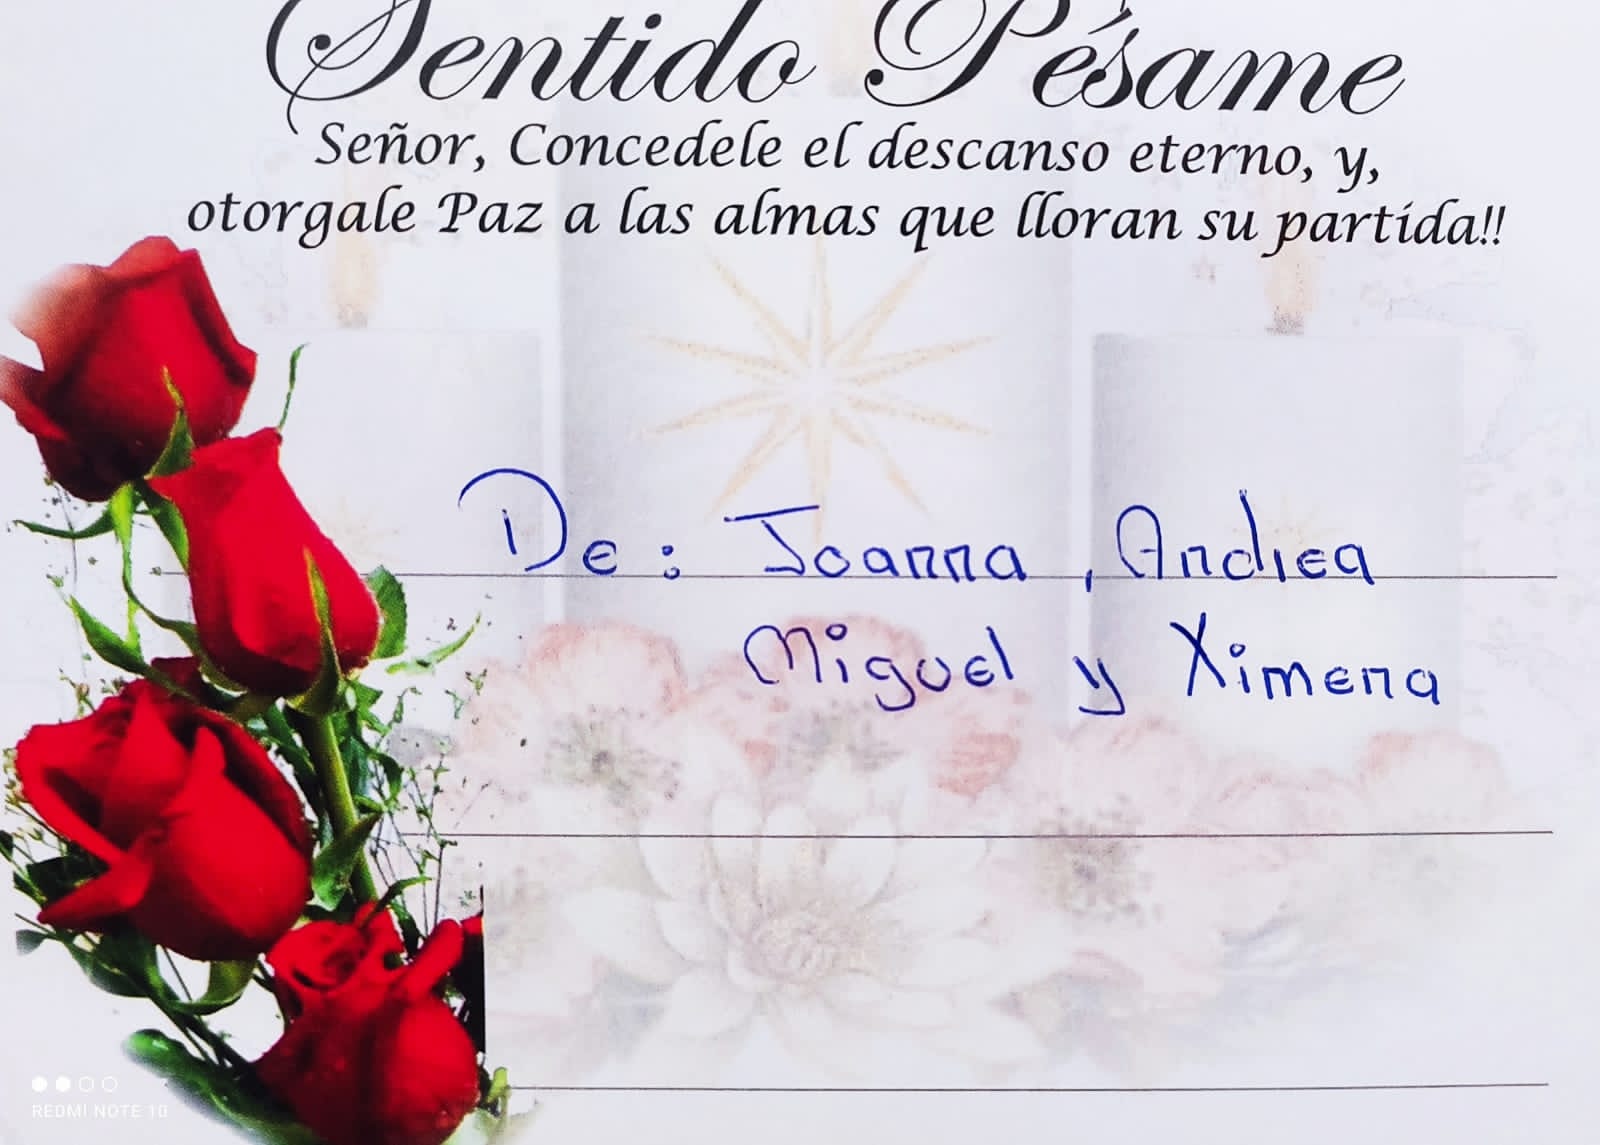 Sentido Pésame
Señor, Concedele el descanso eterno, y,
otorgale Paz a las almas que lloran su partida!!
De: Joanna, Andrea
Miguel y Ximena
REDMI NOTE 10